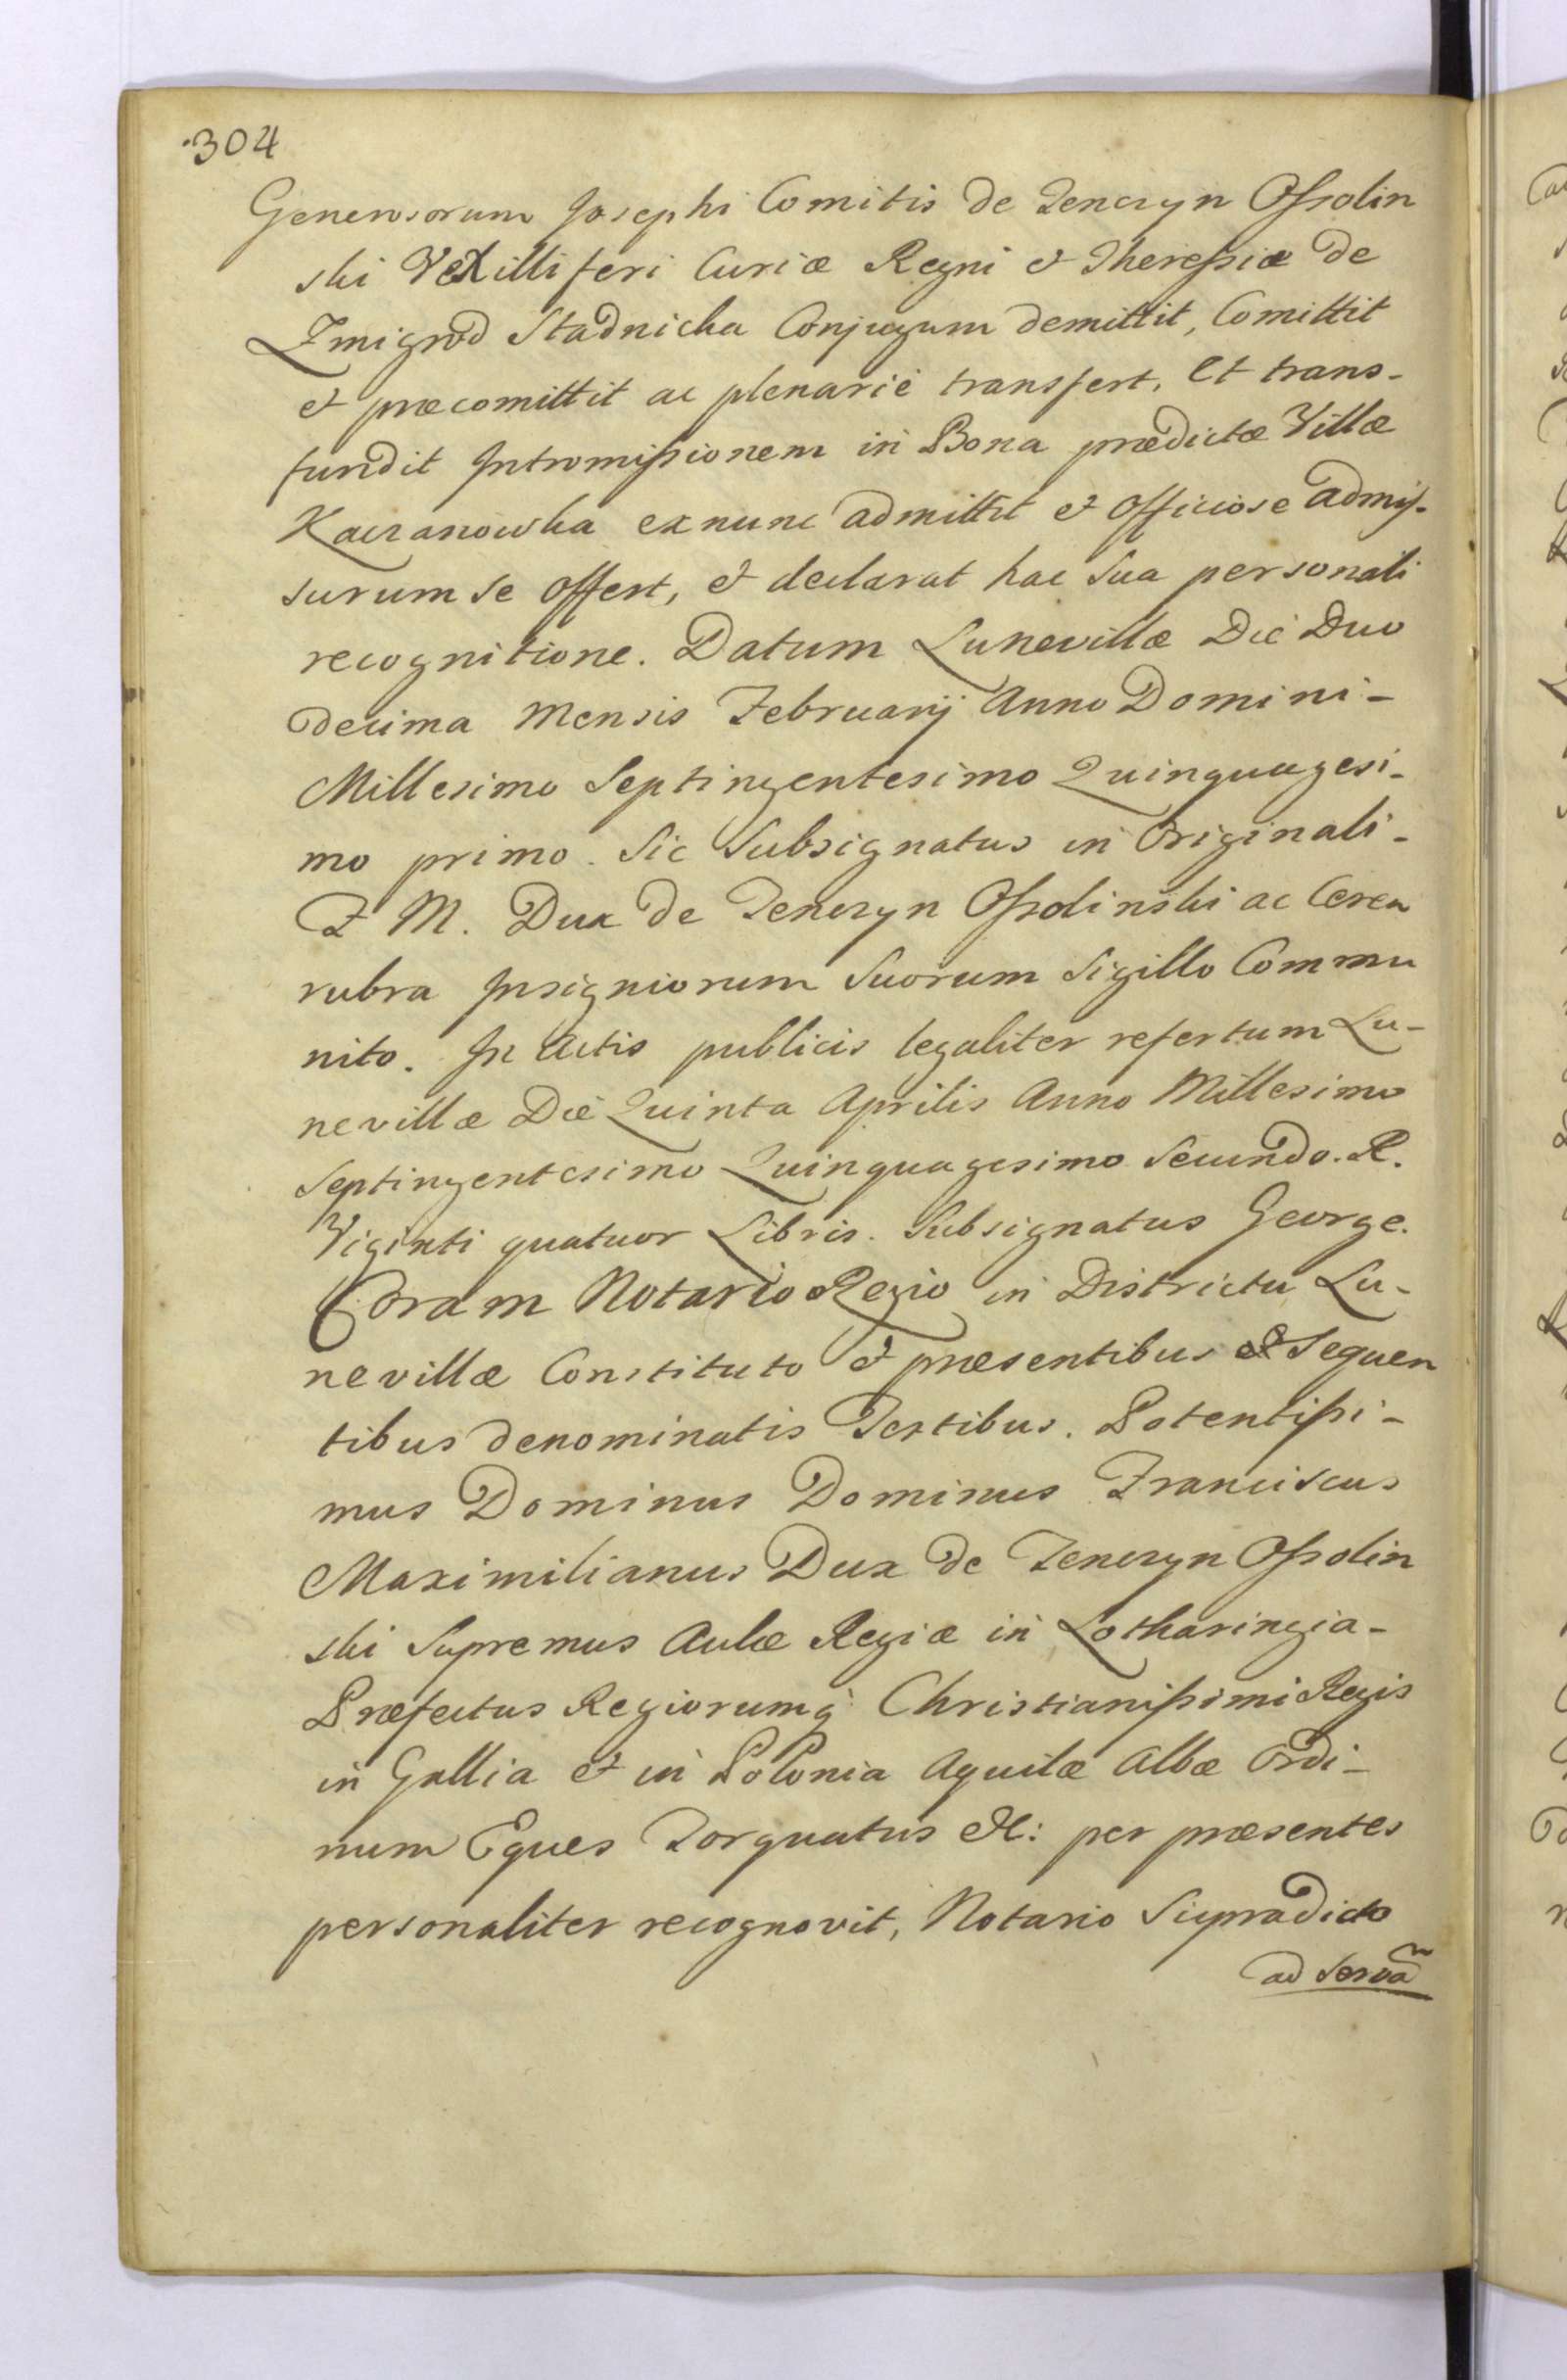 304
Generosorum Josephi Comitis de Tenczyn Ossolin
ski Vexilliferi Curiæ Regni et Theressiæ de
Zmigrod Stadnicka Conjugum demittit, Comittit
et præcomittit ac plenarie transfert, Et trans-
fundit Intromissionem in Bona prædictæ Villæ
Kaczanowka exnunc admittit et officiose admis-
surum se offert, et declarat hac sua personali
recognitione. Datum Lunevillæ Die Duo
decima Mensis Februarij Anno Domini-
Millesimo Septingentesimo Quinquagesi-
mo primo. Sic Subsignatus in Originali-
F M. Dux de Tenczyn Ossolinski ac Cerea
rubra Insigniorum Suorum Sigillo Commu
nito. In Actis publicis legaliter refertum Lu-
nevillæ Die Quinta Aprilis Anno Millesimo
Septingentesimo Quinquagesimo Secundo. R.
Viginti quatuor Libris. Subsignatus George.
Coram Notario Regio in Districtu Lu-
nevillæ Constituto et præsentibus et Sequen
tibus denominatis Testibus. Potentissi-
mus Dominus Dominus Franciscus
Maximilianus Dux de Tenczyn Ossolin
ski Supremus Aulæ Regiæ in Lotharingia-
Præfectus Regiorumq Christianissimi Regis
in Gallia et in Polonia Aquilæ Albæ Ordi-
num Eques Torquatus etc: per præsentes
personaliter recognovit, Notario Supradicto
ad servã